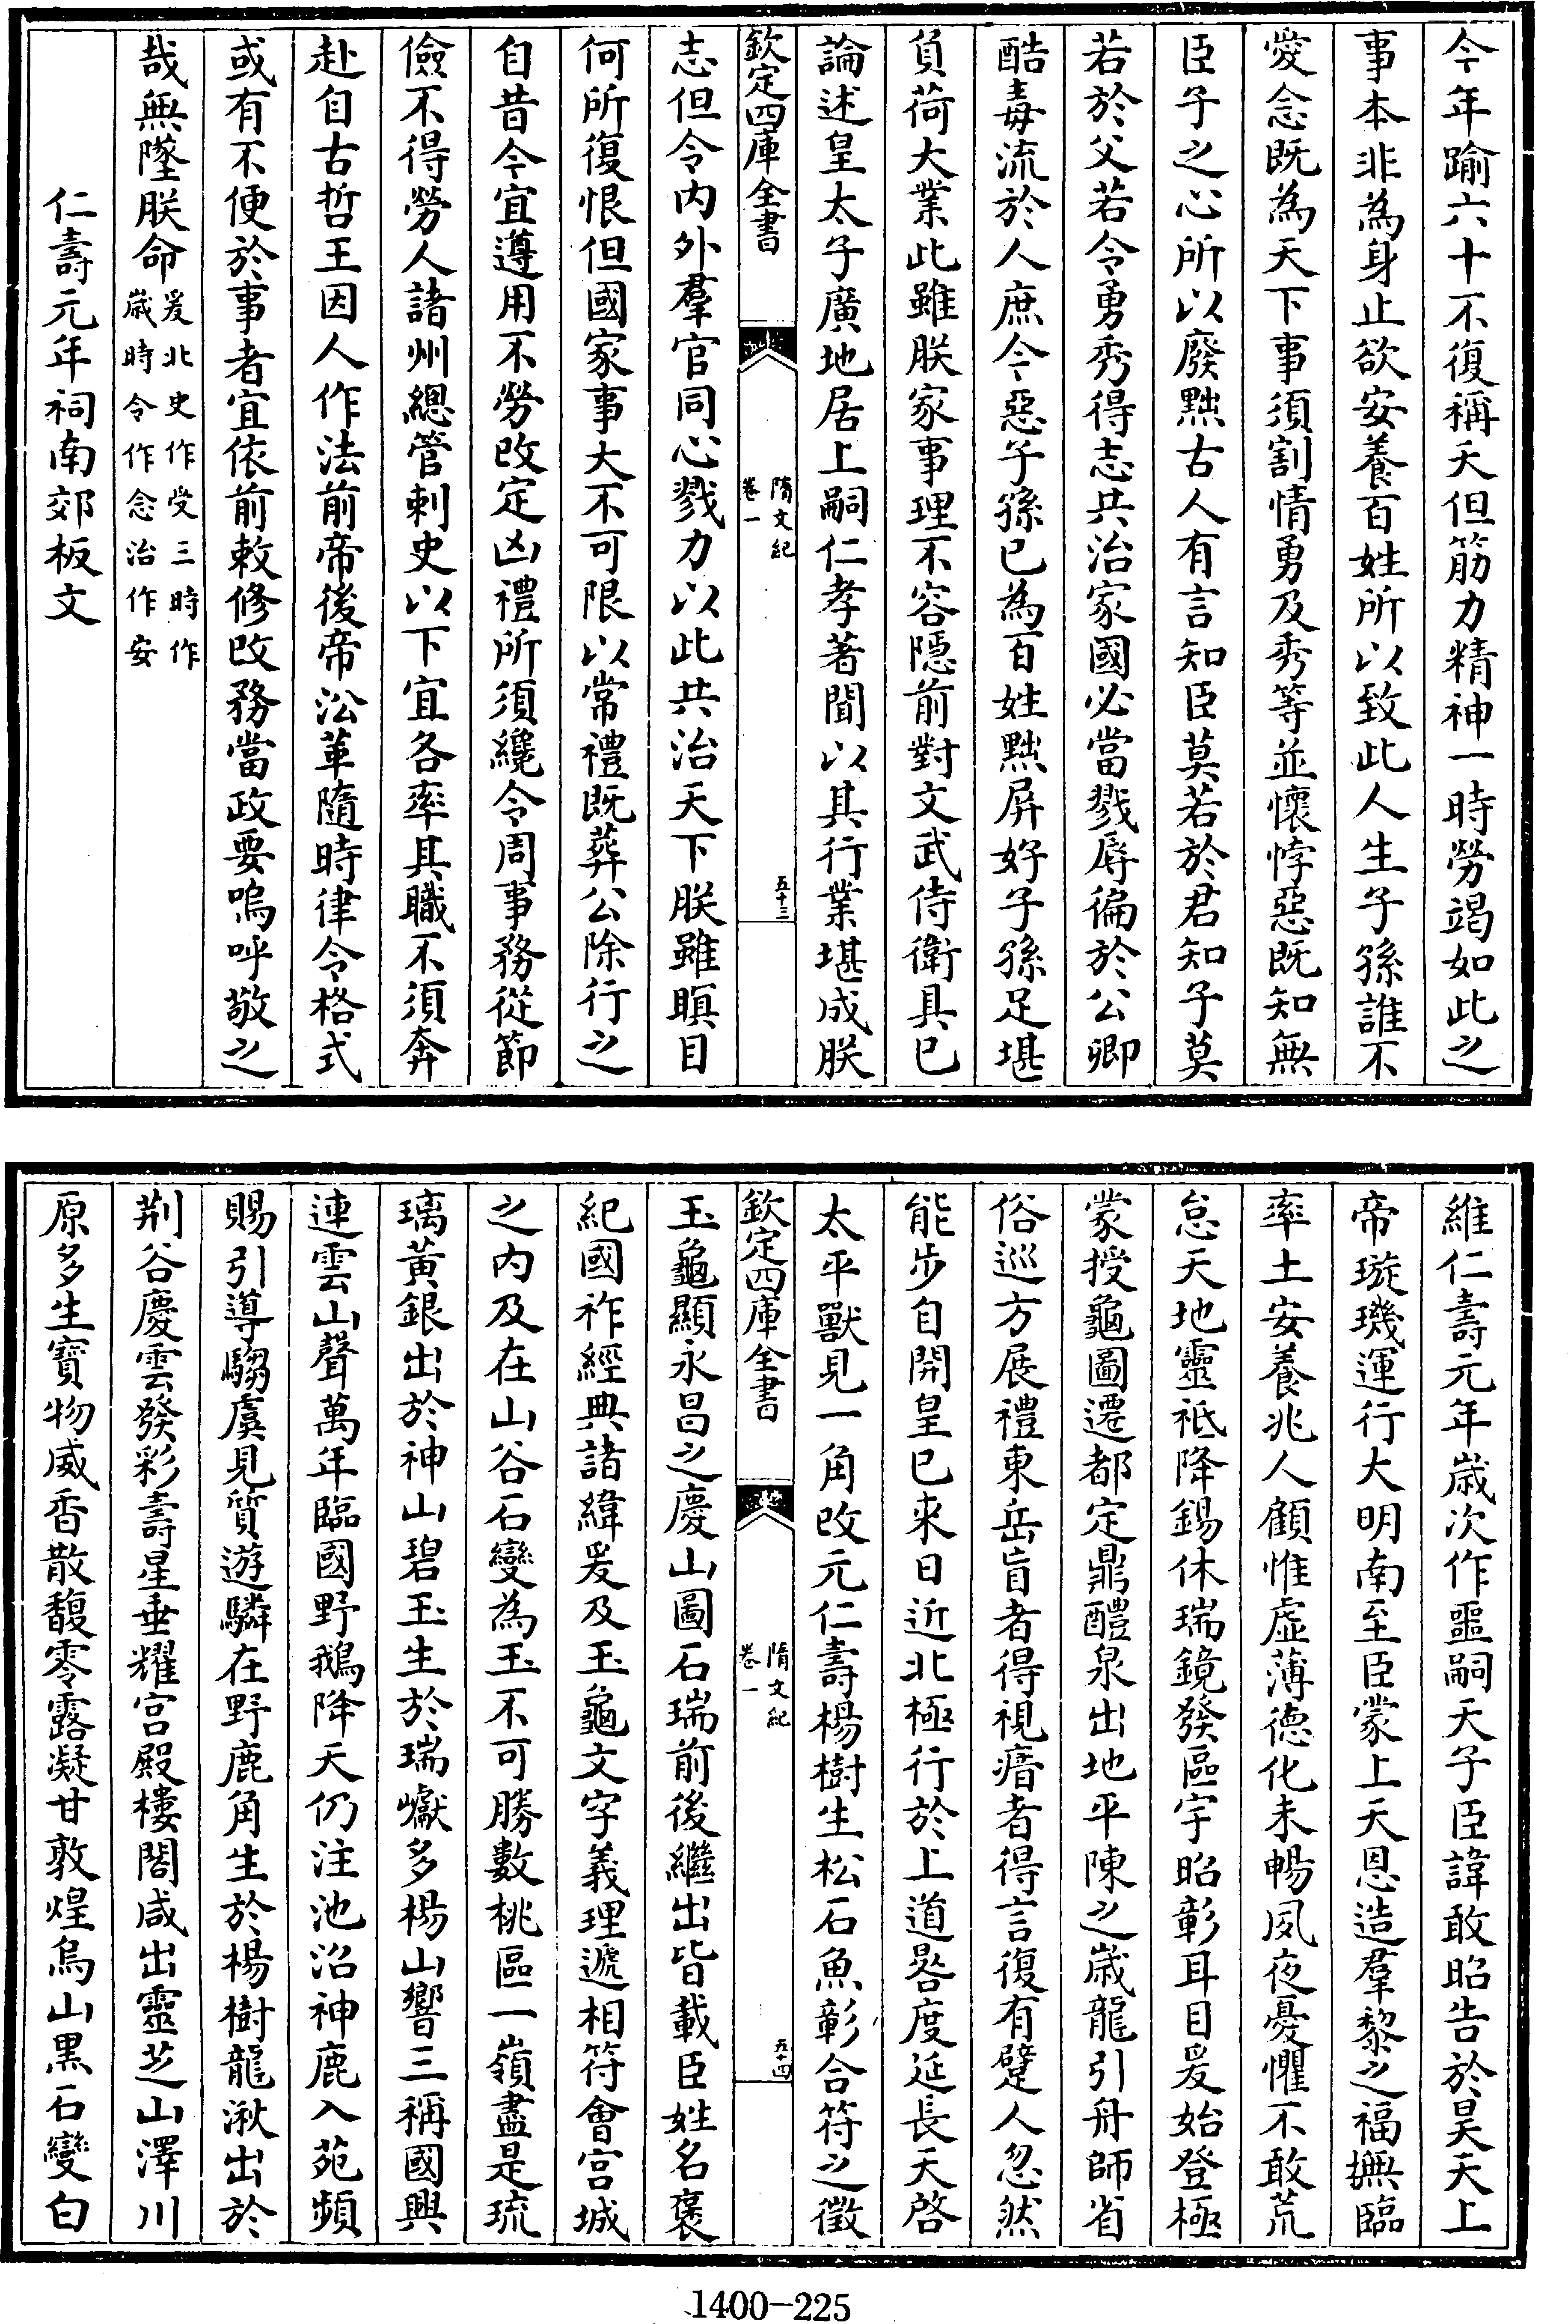 今年踰六十不復稱夭但筋力精神一時勞竭如此之
事本非為身止欲安養百姓所以致此人生子孫誰不
愛念既為天下事須割情勇及秀等並懷悖惡既知無
臣子之心所以廢黜古人有言知臣莫若於君知子莫
若於父若令勇秀得志共治家國必當戮辱徧於公卿
酷毒流於人庶今惡子孫已為百姓黜屏好子孫足堪
負荷大業此雖朕家事理不容隱前對文武侍衛具已
論述皇太子廣地居上嗣仁孝著聞以其行業堪成朕
欽定四庫全書
隋文紀
卷一
五十三
志但令內外羣官同心戮力以此共治天下朕雖瞑目
何所復恨但國家事大不可限以常禮既葬公除行之
自昔今宜遵用不勞改定凶禮所須纔令周事務從節
儉不得勞人諸州總管刺史以下宜各率其職不須奔
赴自古哲王因人作法前帝後帝沿革隨時律令格式
或有不便於事者宜依前敕修改務當政要嗚呼敬之
哉無墜朕命爰北史作受三時作
歲時令作念治作安
仁壽元年祠南郊板文
維仁壽元年歲次作噩嗣天子臣諱敢昭告於昊天上
帝璇璣運行大明南至臣蒙上天恩造羣黎之福撫臨
率土安養兆人顧惟虛薄德化未暢夙夜憂懼不敢荒
怠天地靈祗降錫休瑞鏡發區宇昭彰耳目爰始登極
蒙授龜圖遷都定鼎醴泉出地平陳之歲龍引舟師省
俗巡方展禮東岳盲者得視瘖者得言復有躄人忽然
能步自開皇已来日近北極行於上道晷度延長天啓
太平獸見一角改元仁壽楊樹生松石魚彰合符之徵
欽定四庫全書
隋文紀
卷一
五十四
玉龜顯永昌之慶山圖石瑞前後繼出皆載臣姓名褒
紀國祚經典諸緯爰及玉龜文字義理遞相符會宮城
之內及在山谷石變為玉不可勝數桃區一嶺盡是琉
璃黃銀出於神山碧玉生於瑞巘多楊山響三稱國興
連雲山聲萬年臨國野鵝降天仍注池沼神鹿入苑頻
賜引導騶虞見質遊驎在野鹿角生於楊樹龍湫出於
荆谷慶雲發彩壽星垂耀宮殿樓閣咸出靈芝山澤川
原多生寶物威香散馥零露凝甘敦煌烏山黑石變白
1400-225